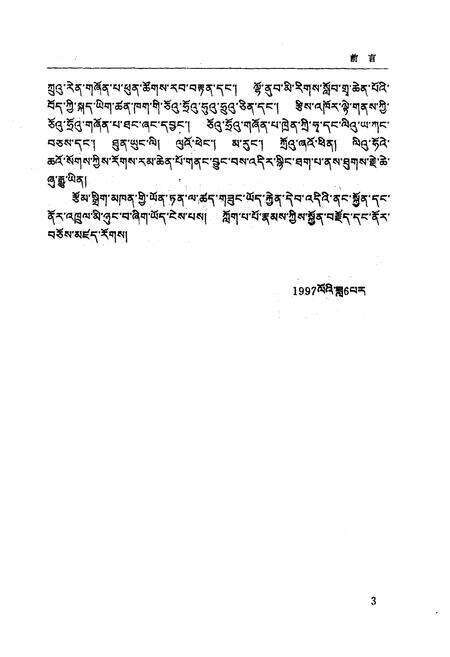 前 言
ཀྲུའུ་རེན་གཞོན་པ་ཕུན་ཚོགས་རབ་བརྟན་དང་། ལྷོ་ནུབ་མི་རིགས་སློབ་གྲྭ་ཆེན་པོའི་
བོད་ཀྱི་སྐད་ཡིག་ཚན་ཁག་གི་ཅོའུ་ཧྲོའུ་ཧྭུའུ་ཅིན་དང་། རྩིས་འཁོར་ལྟེ་གནས་ཀྱི་
ཅོའུ་ཧྲོའུ་གཞོན་པ་ཐང་ཞང་དབྱང་། ཅོའུ་ཧྲོའུ་གཞོན་པ་ཁྲེན་ཀྲི་ཧྭ་དང་ལིའུ་ཡ་ཀང་
བཅས་དང་། ཐུན་ཡུང་ལི། ལུའོ་ཕེང་། མ་རུང་། ཀྲོའུ་ཞའོ་ཕིན། ལིའུ་ཧོའེ་
ཆའོ་སོགས་ཀྱིས་རོགས་རམ་ཆེན་པོ་གནང་བྱུང་བས་འདིར་སྙིང་ཐག་པ་ནས་ཐུགས་རྗེ་ཆེ་
ཞུ་རྒྱུ་ཡིན།
རྩོམ་སྒྲིག་མཁན་གྱི་ཡོན་ཏན་ལ་ཚད་གཟུང་ཡོད་རྐྱེན་དེབ་འདིའི་ནང་སྐྱོན་དང་
ནོར་འཁྲུལ་མི་ཉུང་བ་ཞིག་ཡོད་ངེས་པས། ཀློག་པ་པོ་རྣམས་ཀྱིས་སྐྱོན་བརྗོད་དང་ནོར་
བཅོས་མཛད་རོགས།
1997ལོའི་ཟླ6པར
3